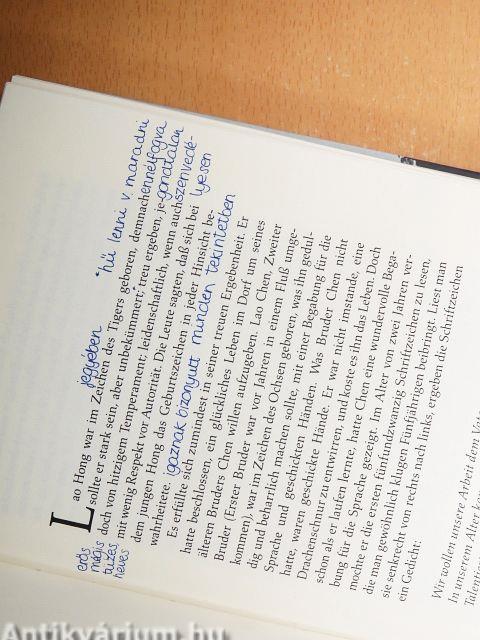 jegyében
"hű lenni v. maradni
Lao Hong war im Zeichen des Tigers geboren, demnach
ennélfogva
sollte er stark sein, aber unbekümmert; treu ergeben, je-
gondtalan
doch von hitzigem Temperament; leidenschaftlich, wenn auch
szenvedé-
lyesen
mit wenig Respekt vor Autorität. Die Leute sagten, daß sich bei
dem jungen Hong das Geburtszeichen in jeder Hinsicht be-
wahrheitete.
igaznak bizonyult minden tekintetben
erős
mégis
tüzes,
heves
Es erfüllte sich zumindest in seiner treuen Ergebenheit. Er
hatte beschlossen, ein glückliches Leben im Dorf um seines
älteren Bruders Chen willen aufzugeben. Lao Chen, Zweiter
Bruder (Erster Bruder war vor Jahren in einem Fluß umge-
kommen), war im Zeichen des Ochsen geboren, was ihn gedul-
dig und beharrlich machen sollte, mit einer Begabung für die
Sprache und geschickten Händen. Was Bruder Chen nicht
hatte, waren geschickte Hände. Er war nicht imstande, eine
Drachenschnur zu entwirren, und koste es ihn das Leben. Doch
schon als er laufen lernte, hatte Chen eine wundervolle Bega-
bung für die Sprache gezeigt. Im Alter von zwei Jahren ver-
mochte er die ersten fünfundzwanzig Schriftzeichen zu lesen,
die man gewöhnlich klugen Fünfjährigen beibringt. Liest man
sie senkrecht von rechts nach links, ergeben die Schriftzeichen
ein Gedicht:
Wir wollen unsere Arbeit dem
In unserem Alter
Antikvárium.hu